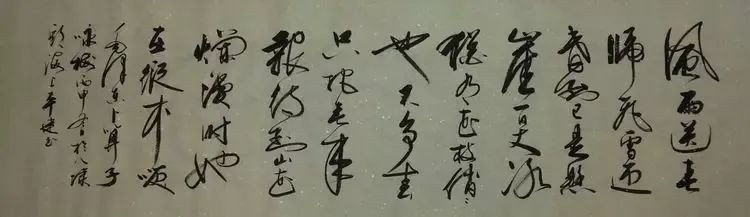 風雨送春
歸飛雪迎
春到已是懸
崖百丈冰
猶有花枝俏〻
也不爭春
只把春來
報待到山花
爛漫時她
在叢中笑
毛澤東卜算子
咏梅丙申冬於